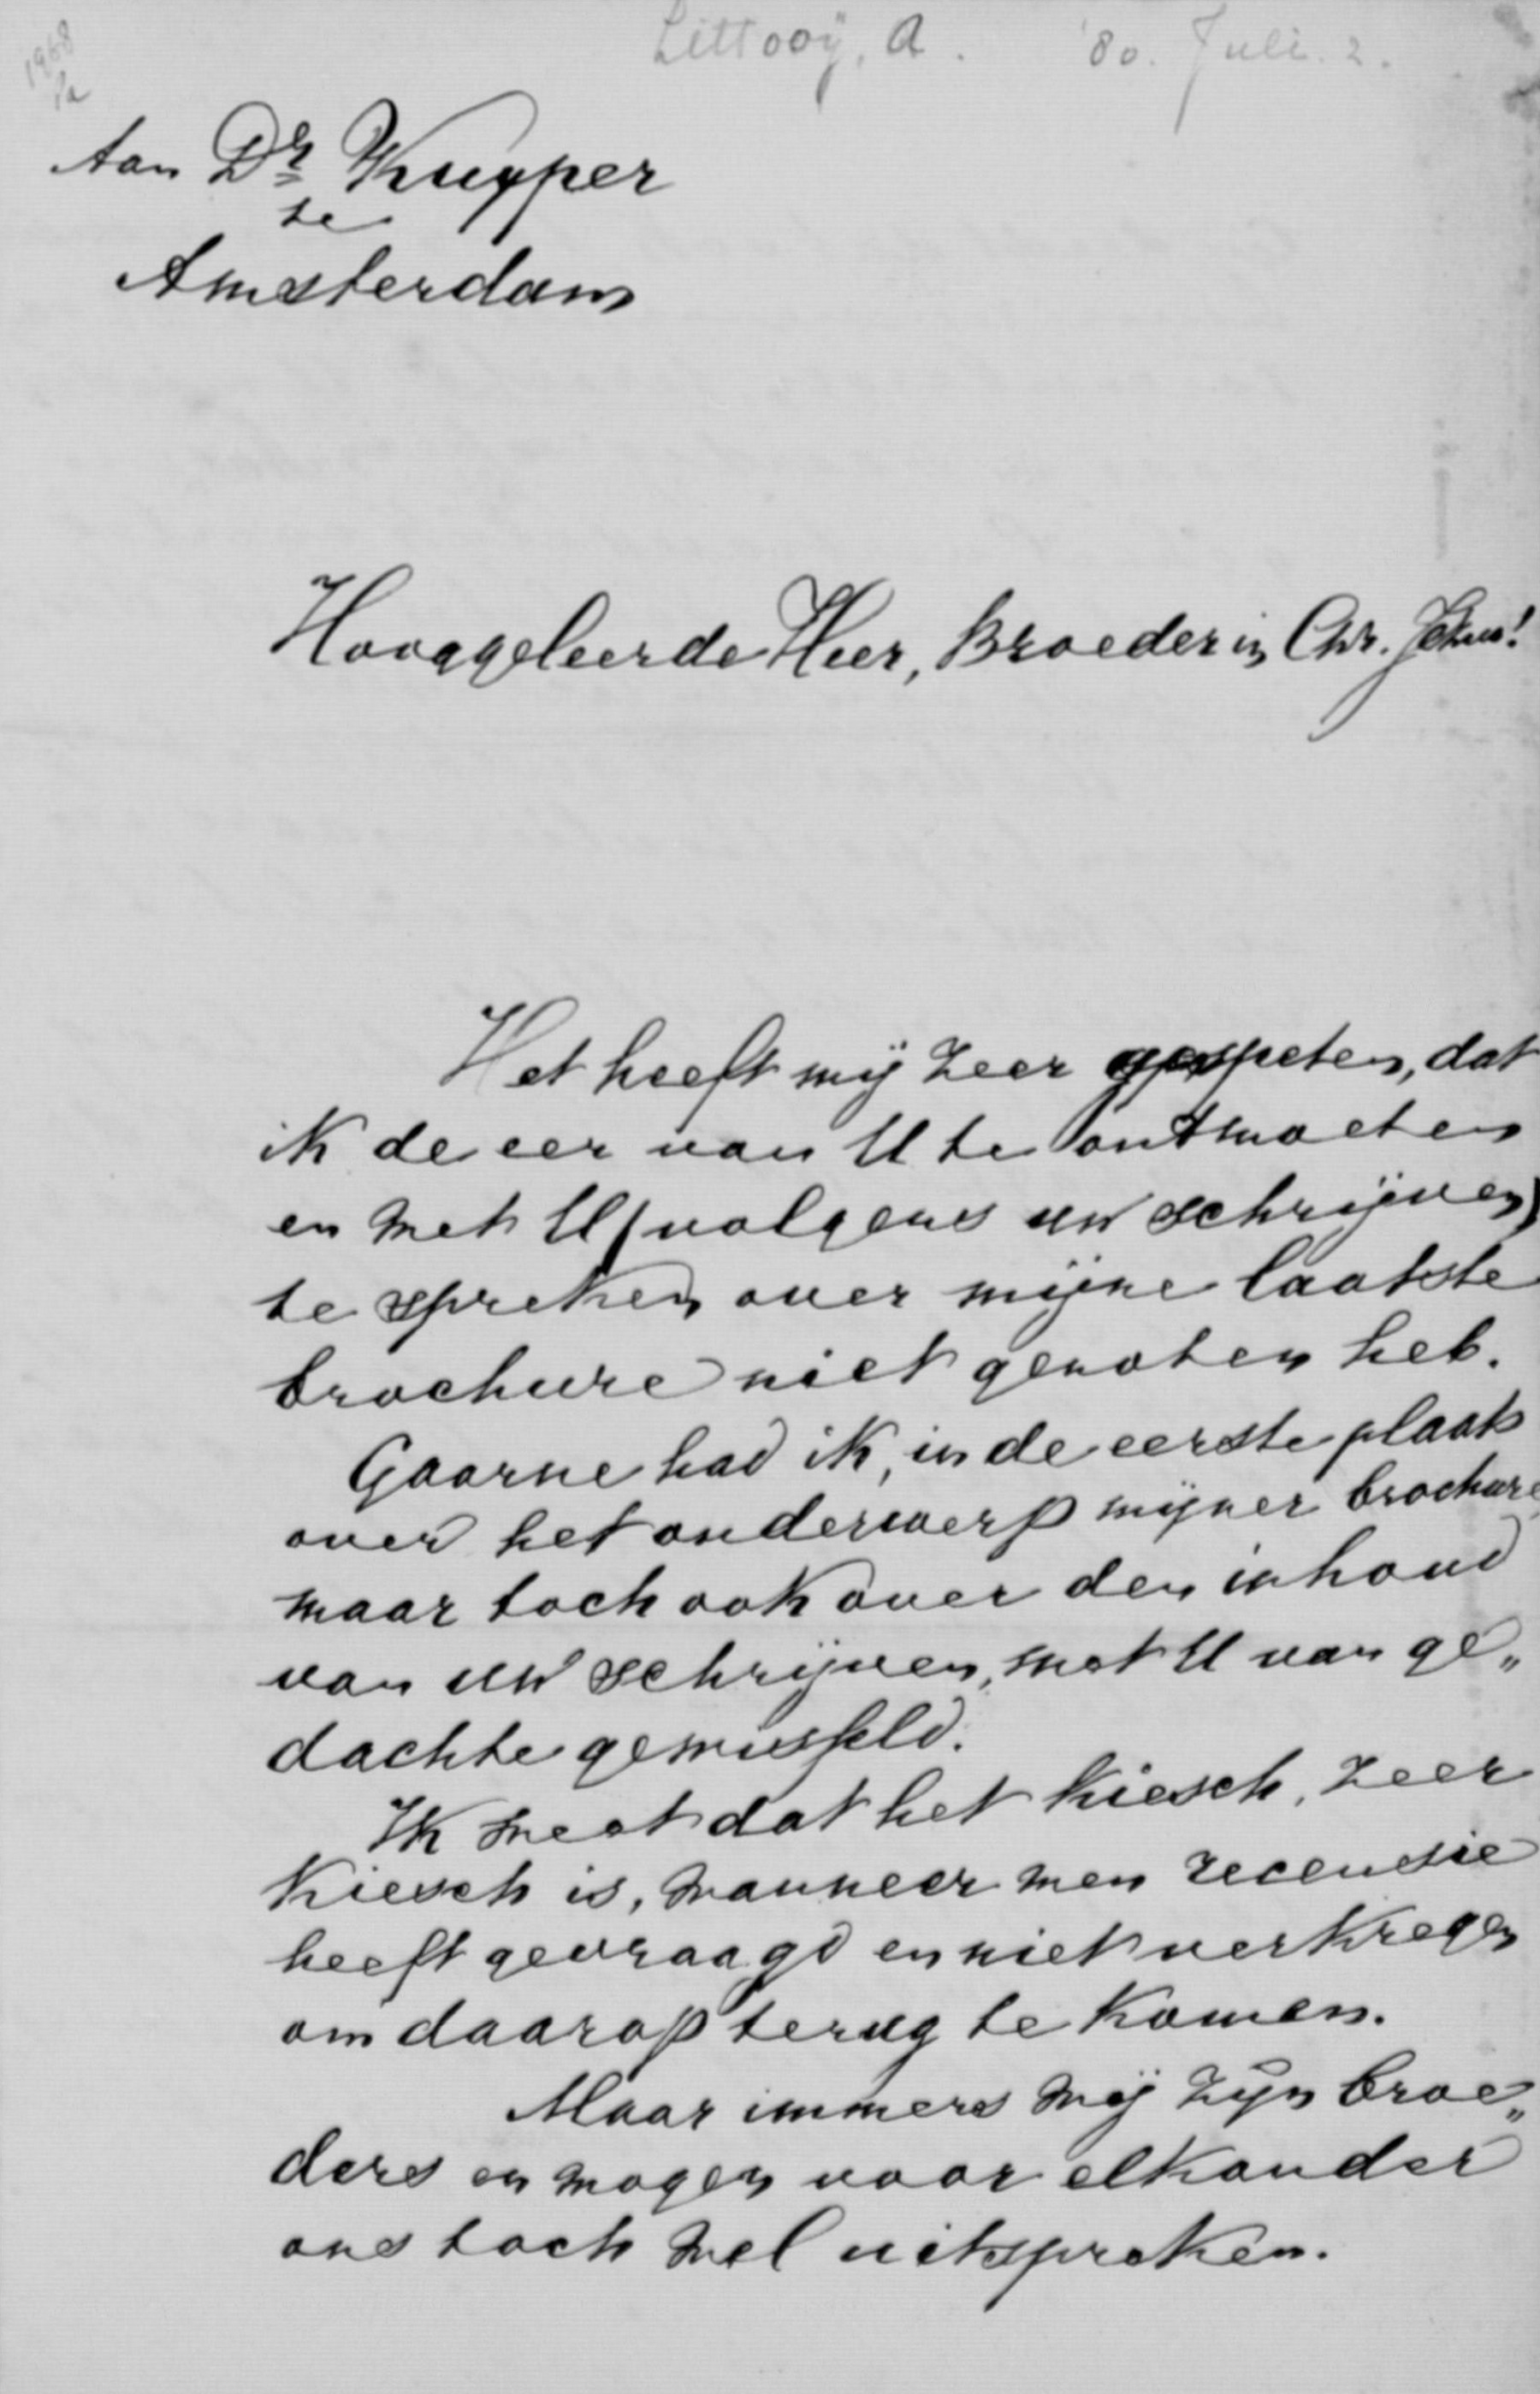 Littooÿ, A. '80. Juli. 2.
1968
Aan Dr Kuyper
te
Amsterdam
Hooggeleerde Heer, Broeder in Chr. Jezus!
Het heeft mÿ zeer gespeten, dat
ik de eer van U te ontmoeten
en met U (volgens uw schrÿven)
te spreken over mÿne laatste
brochure niet genoten heb.
Gaarne had ik, in de eerste plaats
over het onderwerp mÿner brochure,
maar toch ook over den inhoud
van uw schrÿven, met U van ge„
dachte gewisseld.
Ik weet dat het kiesch, zeer
kiesch is, wanneer men recensie
heeft gevraagd en niet verkregen
om daarop terug te komen.
Maar immers wÿ zÿn broe„
ders en mogen voor elkander
ons toch wel uitspreken.